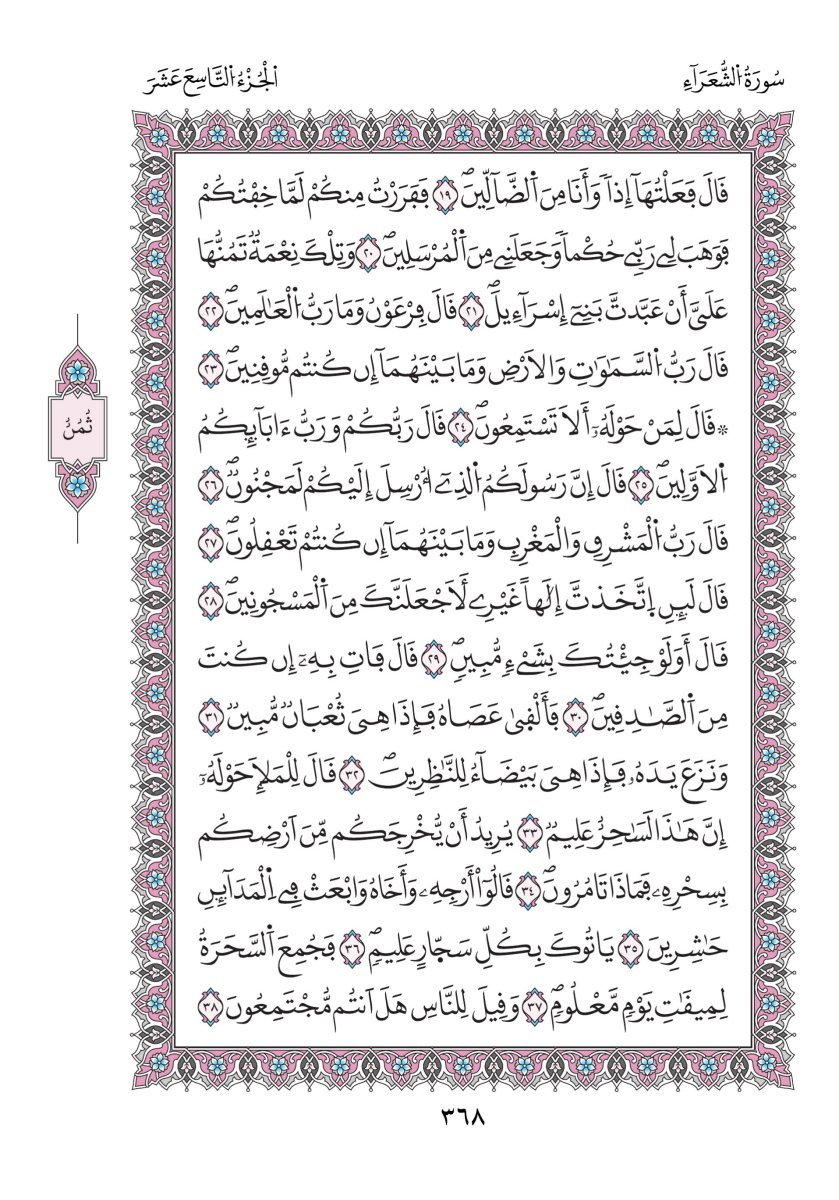 سُورَةُ اُ۬لشُّعَرَآءِ
اَ۬لْجُزْءُ اُ۬لتَّاسِعَ عَشَرَ
قَالَ فَعَلْتُهَآ إِذاٗ وَأَنَا مِنَ اَ۬لضَّآلِّينَۖ ١٩ فَفَرَرْتُ مِنكُمْ لَمَّا خِفْتُكُمْ
فَوَهَبَ لِے رَبِّے حُكْماٗ وَجَعَلَنِے مِنَ اَ۬لْمُرْسَلِينَۖ ٢٠ وَتِلْكَ نِعْمَةٞ تَمُنُّهَا
عَلَيَّ أَنْ عَبَّدتَّ بَنِےٓ إِسْرَآءِيلَۖ ٢١ قَالَ فِرْعَوْنُ وَمَا رَبُّ اُ۬لْعَٰلَمِينَۖ ٢٢
قَالَ رَبُّ اُ۬لسَّمَٰوَٰتِ وَالَارْضِ وَمَا بَيْنَهُمَآ إِن كُنتُم مُّوقِنِينَۖ ٢٣
۞ قَالَ لِمَنْ حَوْلَهُۥٓ أَلَا تَسْتَمِعُونَۖ ٢٤ قَالَ رَبُّكُمْ وَرَبُّ ءَابَآئِكُمُ
اُ۬لَاوَّلِينَۖ ٢٥ قَالَ إِنَّ رَسُولَكُمُ اُ۬لذِےٓ أُرْسِلَ إِلَيْكُمْ لَمَجْنُونٞۖ ٢٦
قَالَ رَبُّ اُ۬لْمَشْرِقِ وَالْمَغْرِبِ وَمَا بَيْنَهُمَآ إِن كُنتُمْ تَعْقِلُونَۖ ٢٧
قَالَ لَئِنِ اِ۪تَّخَذتَّ إِلَٰهاً غَيْرِے لَأَجْعَلَنَّكَ مِنَ اَ۬لْمَسْجُونِينَۖ ٢٨
قَالَ أَوَلَوْ جِئْتُكَ بِشَےْءٖ مُّبِينٖۖ ٢٩ قَالَ فَاتِ بِهِۦٓ إِن كُنتَ
مِنَ اَ۬لصَّٰدِقِينَۖ ٣٠ فَأَلْق۪ىٰ عَصَاهُ فَإِذَا هِىَ ثُعْبَانٞ مُّبِينٞ ٣١
وَنَزَعَ يَدَهُۥ فَإِذَا هِىَ بَيْضَآءُ لِلنَّٰظِرِينَۖ ٣٢ قَالَ لِلْمَلَإِ حَوْلَهُۥٓ
إِنَّ هَٰذَا لَسَٰحِرٌ عَلِيمٞ ٣٣ يُرِيدُ أَنْ يُّخْرِجَكُم مِّنَ اَرْضِكُم
بِسِحْرِهِۦ فَمَاذَا تَامُرُونَۖ ٣٤ قَالُوٓاْ أَرْجِهِۦ وَأَخَاهُ وَابْعَثْ فِے اِ۬لْمَدَآئِنِ
حَٰشِرِينَ ٣٥ يَاتُوكَ بِكُلِّ سَحّ۪ارٍ عَلِيمٖۖ ٣٦ فَجُمِعَ اَ۬لسَّحَرَةُ
لِمِيقَٰتِ يَوْمٖ مَّعْلُومٖۖ ٣٧ وَقِيلَ لِلنَّاسِ هَلَ اَنتُم مُّجْتَمِعُونَ ٣٨
ثُمُنُ
٣٦٨